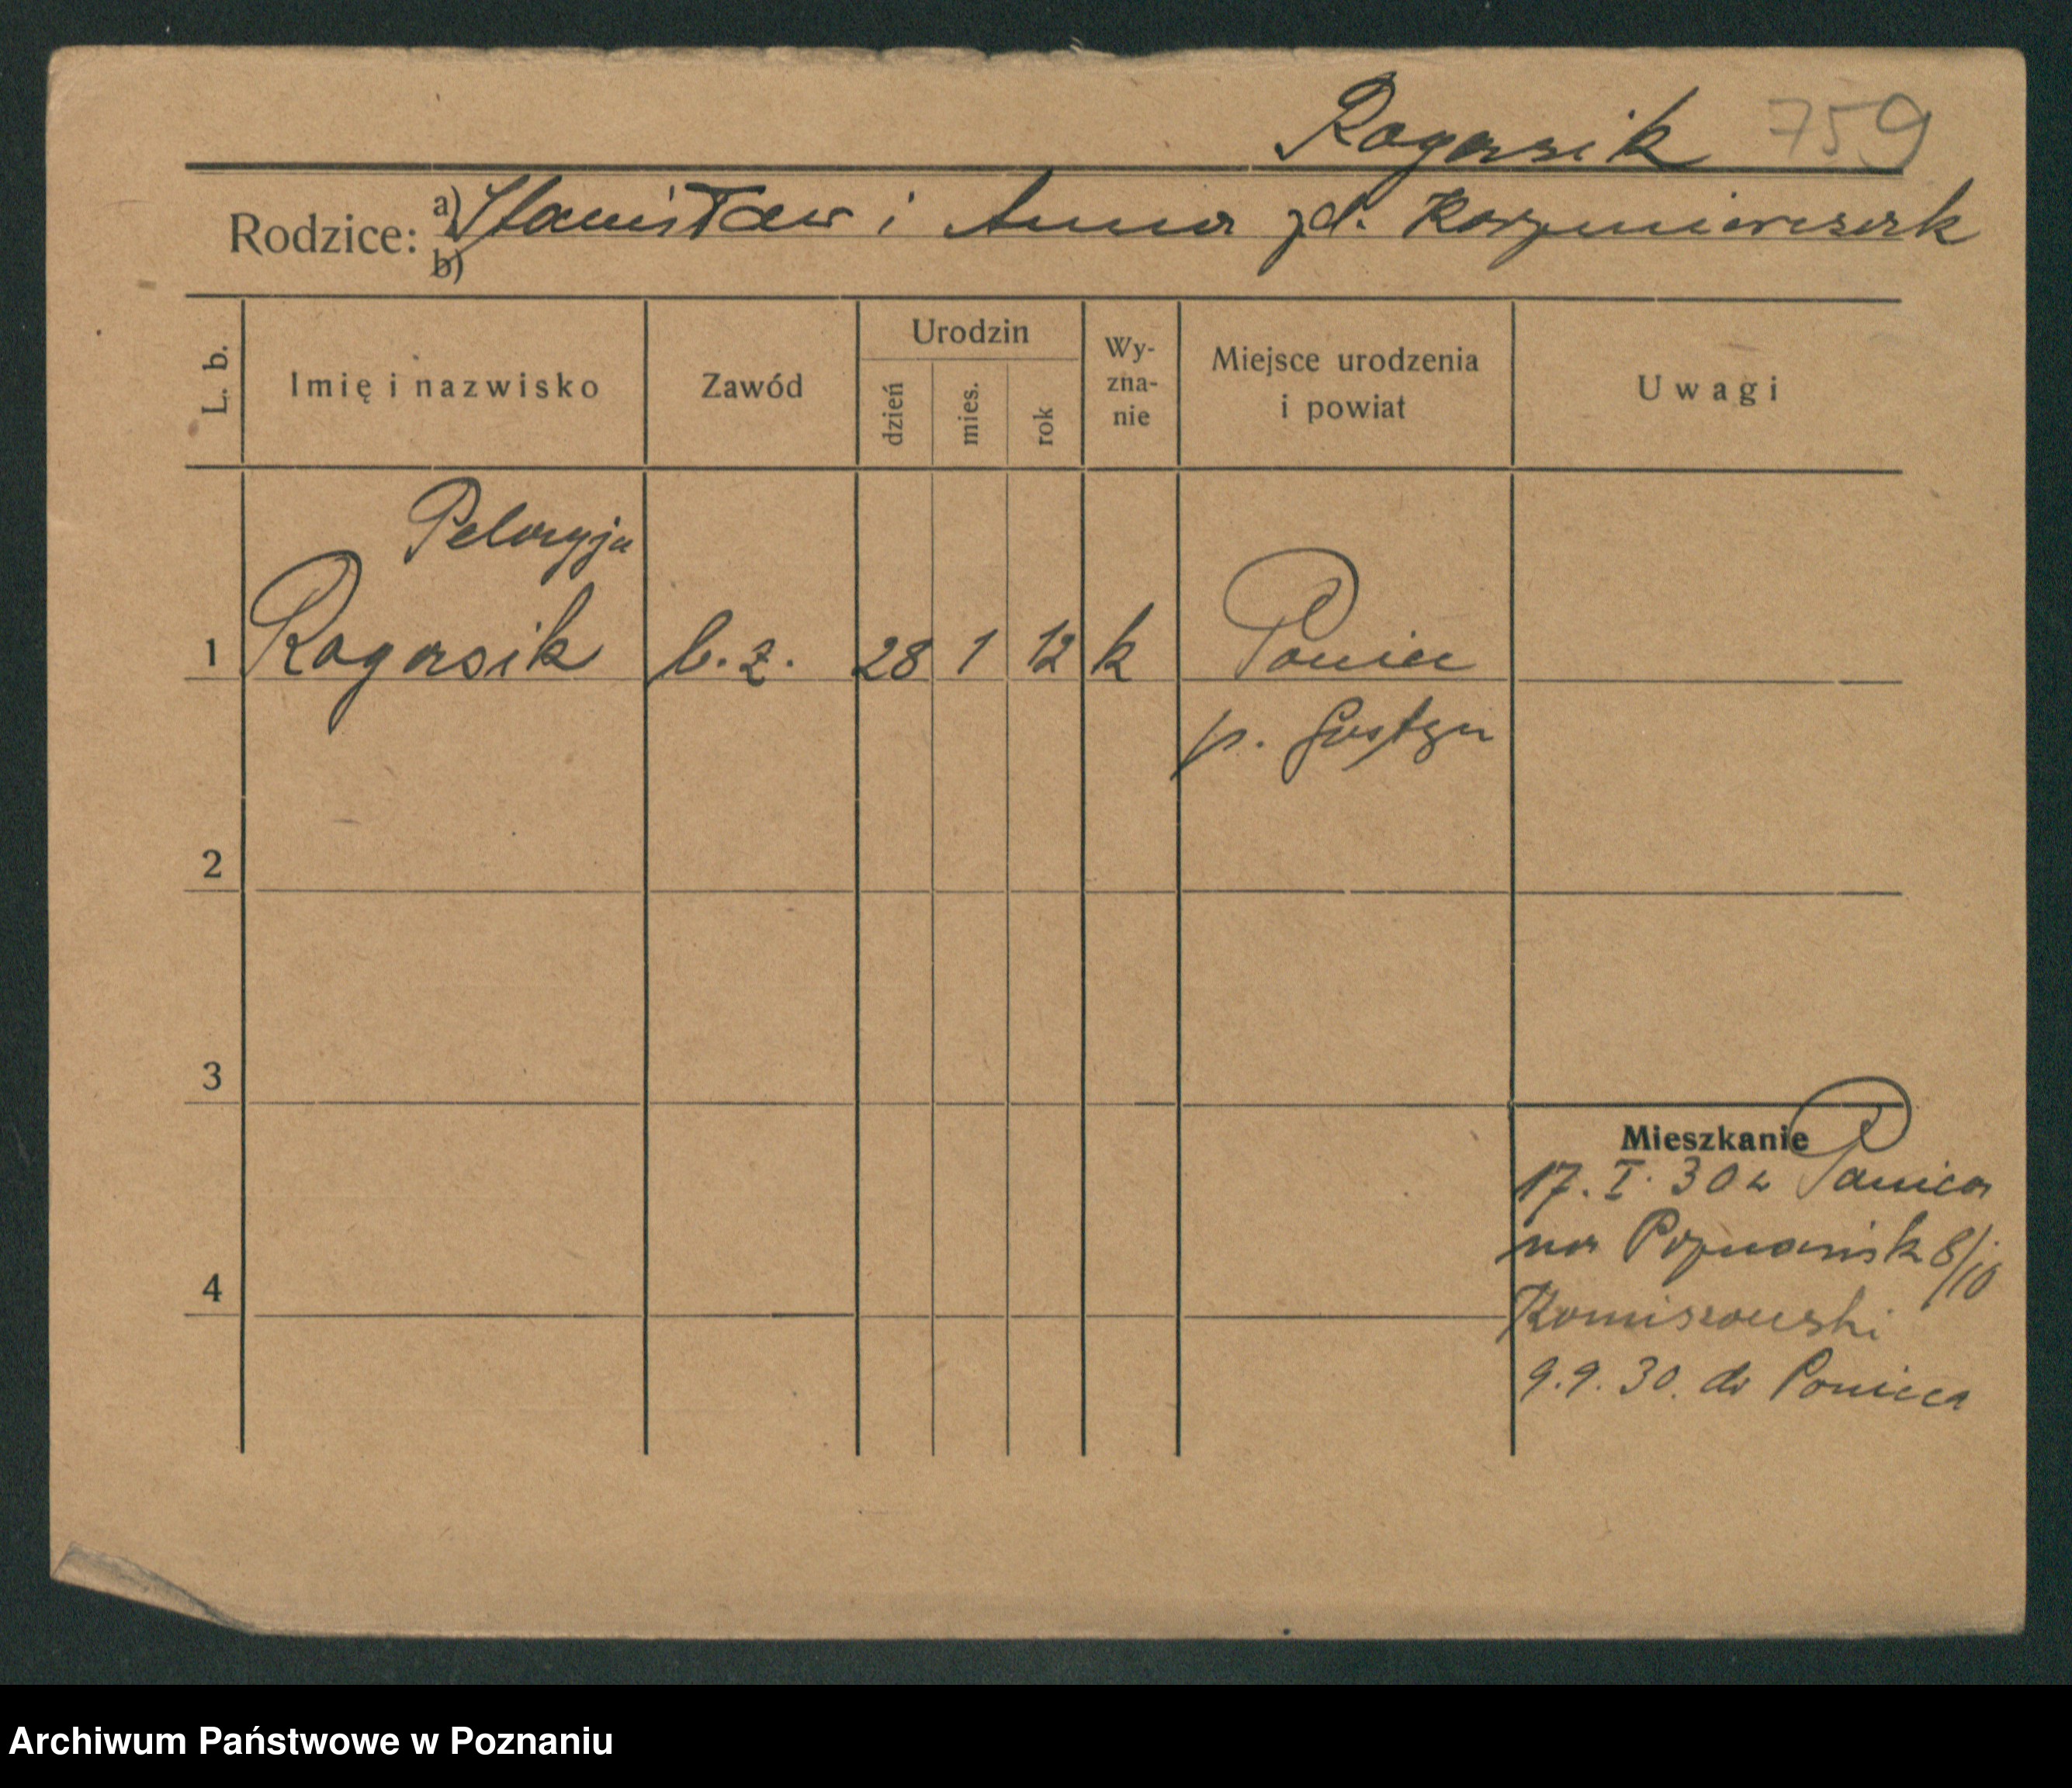 Rogasik 759
Rodzice: a) Stanisław i Anna zd. Kaźmierczak
b)
L. b.
Imię i nazwisko
Zawód
Urodzin
dzień
mies.
rok
Wy-
zna-
nie
Miejsce urodzenia
i powiat
Uwagi
Pelagja
1 Rogasik b. z. 28 1 12 k Poniec
p. Gostyń
2
3
Mieszkanie
17. I. 30 z Ponieca
na Poznańsk 8/10
9.9.30. do Ponieca
4
Archiwum Państwowe w Poznaniu